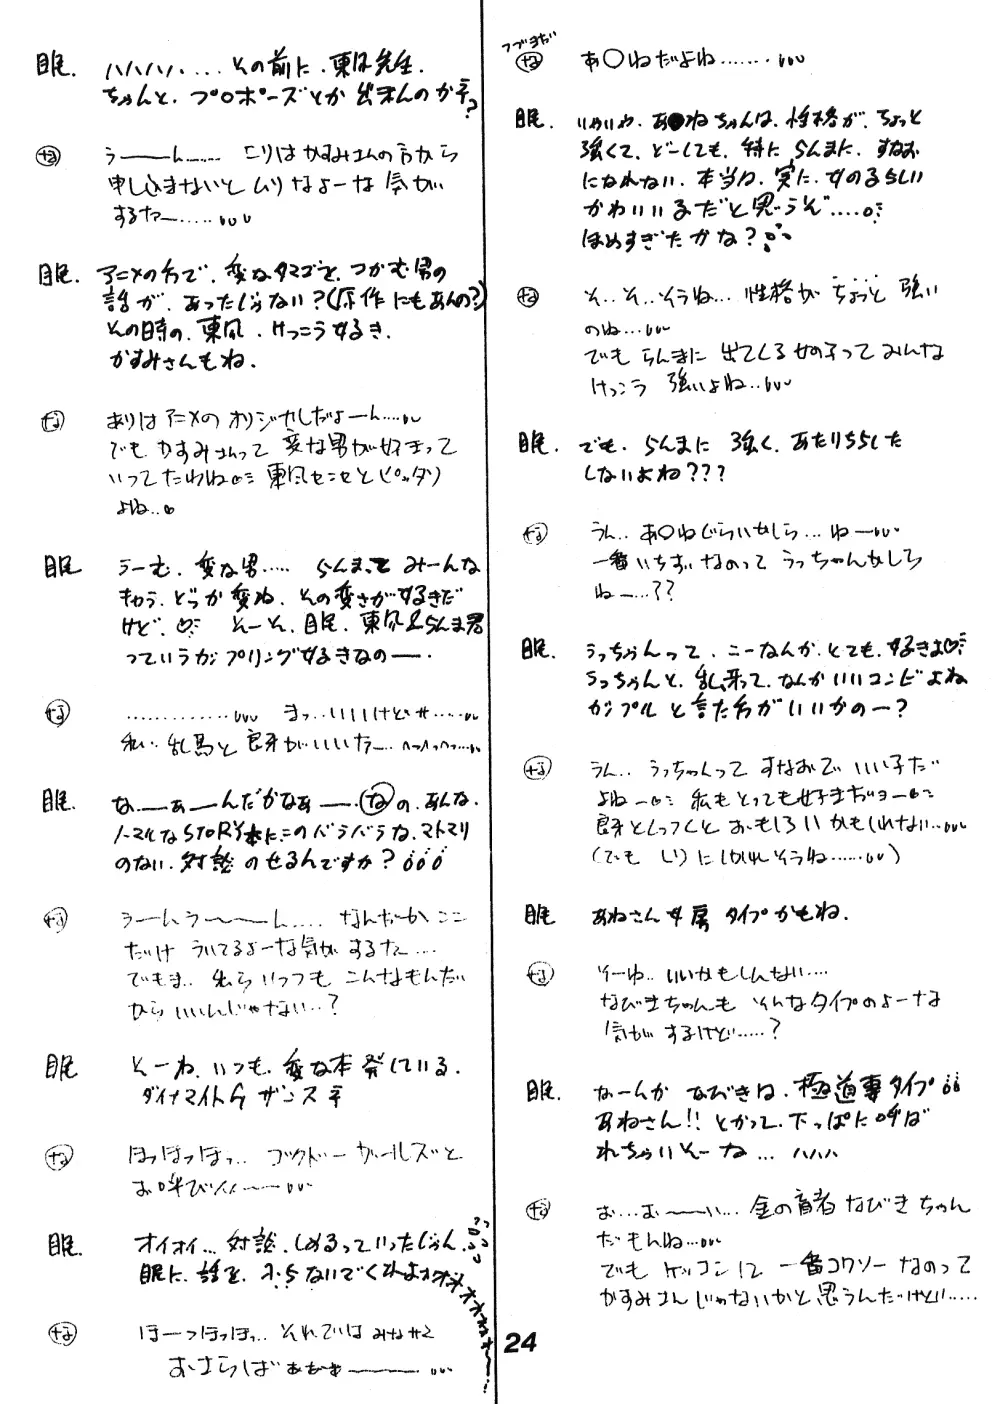 つづきだい
な あ○ねだよね........ooo
眠. いやいや、あ●ねちゃんは、性格が、ちょっと
強くて、どーしても、特に らんまに、すなお
になれない、本当は、実に、女のるらしい
かわいいるだと思うぞ....。
ほめすぎたかな?
な そ..そ..そうね... 性格が ちょっと 強い
のね...ooo
でも らんまに 出てくる女の子って みんな
けっこう 強いよね..ooo
眠. でも、らんまに 強く、あたりちらした
しないよね???
な うん... あ○ねぐらいかしら... ねーooo
一番いちずなのって うっちゃんかしら
ねー...??
眠. うっちゃんって、こーなんか、とても、好きよ♡
うっちゃんと、乱馬って、なんかいいコンビよね
カップルと言た方がいいかのー?
な うん.. うっちゃんって すなおで いい子だ
よね-o 私もとっても好きだョーo
良牙とくっつくと おもしろいかもしれない..ooo
(でも しりにしかれそうね......ooo)
眠 あねさん女房 タイプかもね.
な そーゆ.. いいかもしんない....
なびきちゃんも そんなタイプのよーな
気がするけど.....?
眠. なーんか なびきは、極道専タイプ
あねさん!! とかって、下っぱに呼ば
れちゃいそーな ... ハハハ
な お...お〜〜い... 金の亡者なびきちゃん
だもんね...ooo
でも ケッコン後 一番コワソーなのって
かすみさんじゃないかと思うんだけど.....
眠. ハハハハ....その前に、東風先生.
ちゃんと、プロポーズとか 出来んのか?
な うーーん...... こりはかすみさんの方から
申し込まないと ムリなよーな 気が
するなー.....ooo
眠. アニメの方で、変なタマゴと、つかむ男の
話が、あったじゃない?(原作にもあんの?)
その時の、東風、けっこう好き.
かすみさんもね.
な ありはアニメの オリジナルだよーん....ooo
でも かすみさんって 変な男が好きって
いってたわね 東風センセとピッタリ
よね..o
眠 うーむ、変な男..... らんまって みーんな
きゃら、どっか変ね、その変さが好きだ
けど、♡ そーそ、眠、東風&らんま君
っていうカップリング好きなのー.
な .............ooo まっ...いいけどサ.....ooo
私.. 乱馬と良牙がいいなー.. へっへっへっ...ooo
眠. なーーぁーんだかなぁー. なの、あんな、
ノーマルなSTORY本に、このバラバラな、マトマリ
のない、対談 のせるんですか?
な うーんうー〜〜ん.... なんだかここ
だけ ういてるよーな気がするな....
でもま.. 私ら いっつも こんなもんだ
から いいんじゃない..?
眠 そーね、いつも、変な本発している.
ダイナマイトG ザンス
な ほっほっほっ.. ゴクドーガールズと
お呼びんーーooo
眠. オイオイ... 対談、しめるっていったじゃん.
眠に、話を、ふらないでくれよ
な ほーっほっほっ.. それでは みなサマ
おさらばぁぁぁーーー..ooo
24